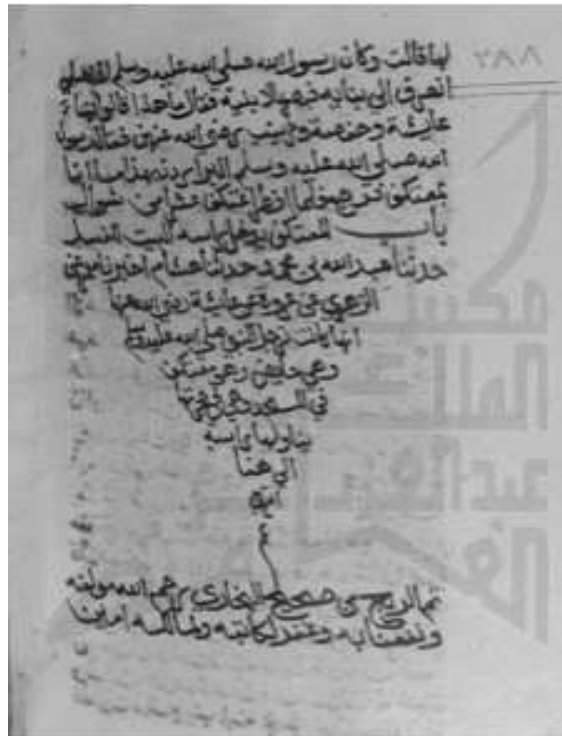 ٢٨٨
لها قالت وكان رسول الله صلى الله عليه وسلم اذا صلى
انصرف إلى بنايه فبصر بالابنية فقال ما هذا قالوا بناء
عائشة وحفصة وزينب رضي الله عنهن فقال رسول
الله صلى الله عليه وسلم البر اردن بهذا ما انا
بمعتكف فرجع فلما افطر اعتكف عشرا من شوال
باب المعتكف يدخل راسه البيت للغسل
حدثنا عبد الله بن محمد حدثنا هشام اخبرنا معمر عن
الزهري عن عروة عن عائشة رضي الله عنها
انها كانت ترجل النبي صلى الله عليه وسلم
وهي حايض وهو معتكف
في المسجد وهي في حجرتها
يناولها راسه
الى هنا
تم الربع من صحيح البخاري رحم الله مولفه
ونفعنا به وغفر لكاتبه ولمالكه امين
مكتبة
الملك
عبد العزيز
العامة